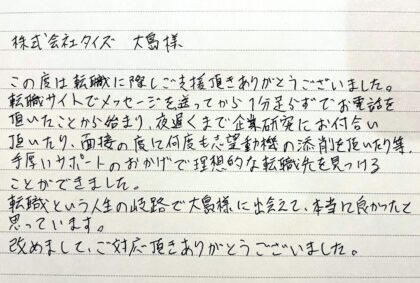 株式会社タイズ 大島様
この度は転職に際しご支援頂きありがとうございました。
転職サイトでメッセージを送ってから1分足らずでお電話を
頂いたことから始まり、夜遅くまで企業研究にお付合い
頂いたり、面接の度に何度も志望動機の添削を頂いたり等、
手厚いサポートのおかげで理想的な転職先を見つける
ことができました。
転職という人生の岐路で大島様に出会えて、本当に良かったと
思っています。
改めまして、ご対応頂きありがとうございました。